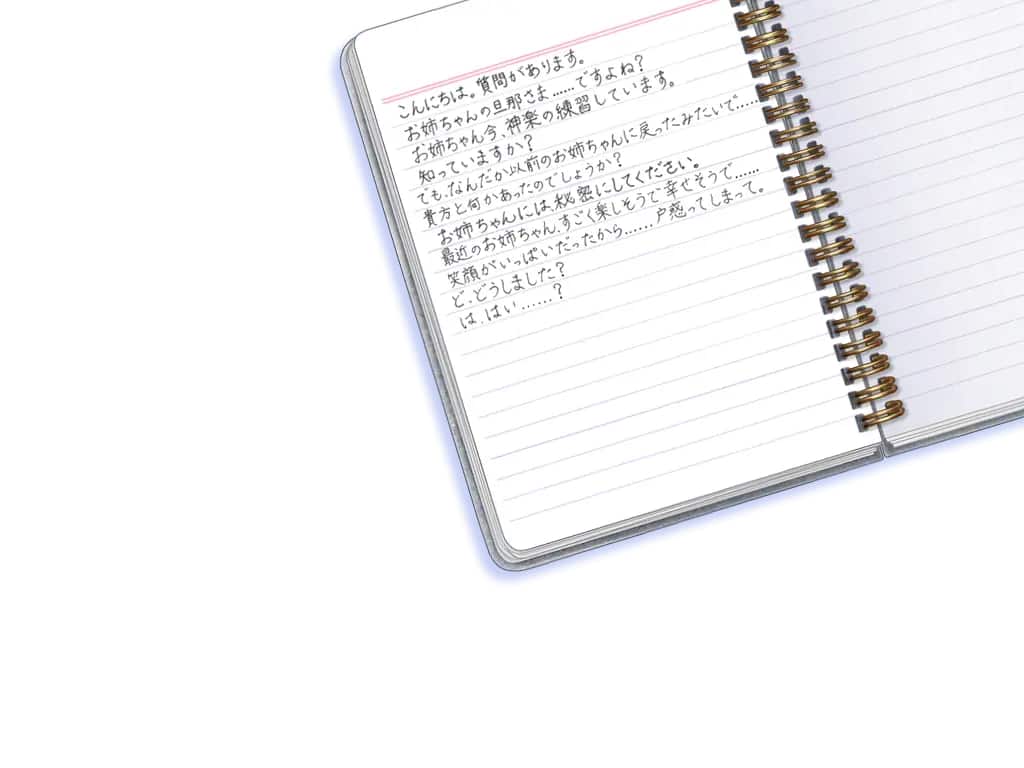 こんにちは。質問があります。
お姉ちゃんの旦那さま……ですよね？
お姉ちゃん今、神楽の練習しています。
知っていますか？
でも、なんだか以前のお姉ちゃんに戻ったみたいで……
貴方と何かあったのでしょうか？
お姉ちゃんには、秘密にしてください。
最近のお姉ちゃん、すごく楽しそうで幸せそうで……
笑顔がいっぱいだったから……戸惑ってしまって。
ど、どうしました？
は、はい……？